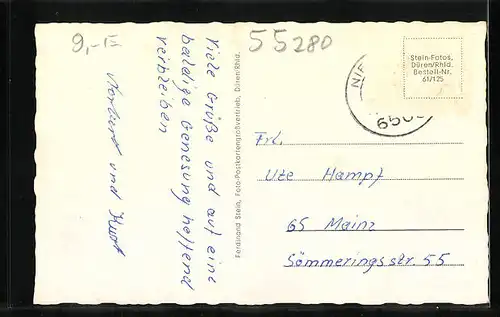 9,-
55280
Viele Grüße und auf eine
baldige Genesung hoffend
verbleiben
Norbert und Kurt
Ferdinand Stein, Foto-Postkartengroßvertrieb, Düren/Rhld.
Stein-Fotos,
Düren/Rhld.
Bestell-Nr.
61/125
NIE
650
Frl.
Ute Hampf
65 Mainz
Sömmeringsstr. 55